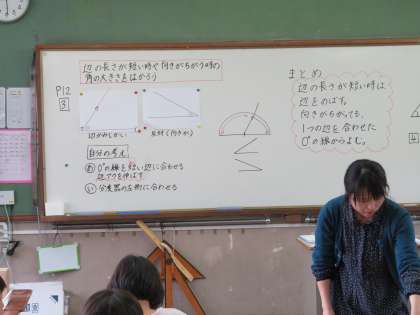 辺の長さが短い時や向きがちがう時の
角の大きさをはかろう
P12
3
辺がみじかい
反対(向きが)
自分の考え
あ 0°の線を短い辺に合わせる
辺アウを伸ばす
い 分度器の左側に合わせる
まとめ
辺の長さが短い時は
辺をのばす。
向きがちがっても、
1つの辺を合わせた
0°の線からよむ。
4